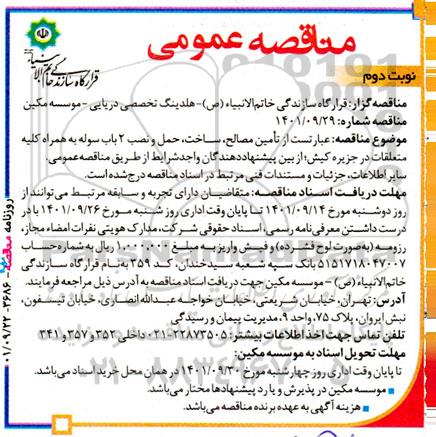 قرارگاه سازندگی خاتم الانبیاء
مناقصه عمومی
نوبت دوم
مناقصه گزار: قرارگاه سازندگی خاتم‌الانبیاء (ص)-هلدینگ تخصصی دریایی- موسسه مکین
مناقصه شماره: ۱۴۰۱/۰۹/۲۹
موضوع مناقصه: عبارتست از تأمین مصالح، ساخت، حمل و نصب ۲ باب سوله به همراه کلیه
متعلقات در جزیره کیش؛ از بین پیشنهاددهندگان واجدشرایط از طریق مناقصه عمومی.
سایر اطلاعات، جزئیات و مستندات فنی مرتبط در اسناد مناقصه درج شده است.
مهلت دریافت اسناد مناقصه: متقاضیان دارای تجربه و سابقه مرتبط می‌توانند از
روز دوشنبه مورخ ۱۴۰۱/۰۹/۱۴ تا پایان وقت اداری روز شنبه مورخ ۱۴۰۱/۰۹/۲۶ با در
درست داشتن معرفی‌نامه رسمی، اسناد حقوقی شرکت، مدارک هویتی نفرات امضاء مجاز،
رزومه (به‌صورت لوح فشرده) و فیش واریز به مبلغ ۱،۰۰۰،۰۰۰ ریال به شماره حساب
۵۱۵۱۷۱۸۰۴۷۰۰۷ بانک سپه شعبه سیدخندان، کد ۳۵۹ به‌نام قرارگاه سازندگی
خاتم‌الانبیاء (ص)- موسسه مکین جهت دریافت اسناد مناقصه به آدرس ذیل مراجعه فرمایند.
آدرس: تهران، خیابان شریعتی، خیابان خواجه عبدالله انصاری، خیابان تیسفون،
نبش ایروان، پلاک ۷۵، واحد ۹، مدیریت پیمان و رسیدگی
تلفن تماس جهت اخذ اطلاعات بیشتر: ۵-۲۲۸۷۳۵-۰۲۱ داخلی ۳۵۲ و ۳۵۷ و ۳۴۱
مهلت تحویل اسناد به موسسه مکین:
تا پایان وقت اداری روز چهارشنبه مورخ ۱۴۰۱/۰۹/۳۰ در همان محل خرید اسناد می‌باشد.
موسسه مکین در پذیرش و یا رد پیشنهادها مختار می‌باشد.
هزینه آگهی به عهده برنده مناقصه می‌باشد.
روزنامه مناقصه
۰۱/۰۹/۲۲-۳۶۸۶